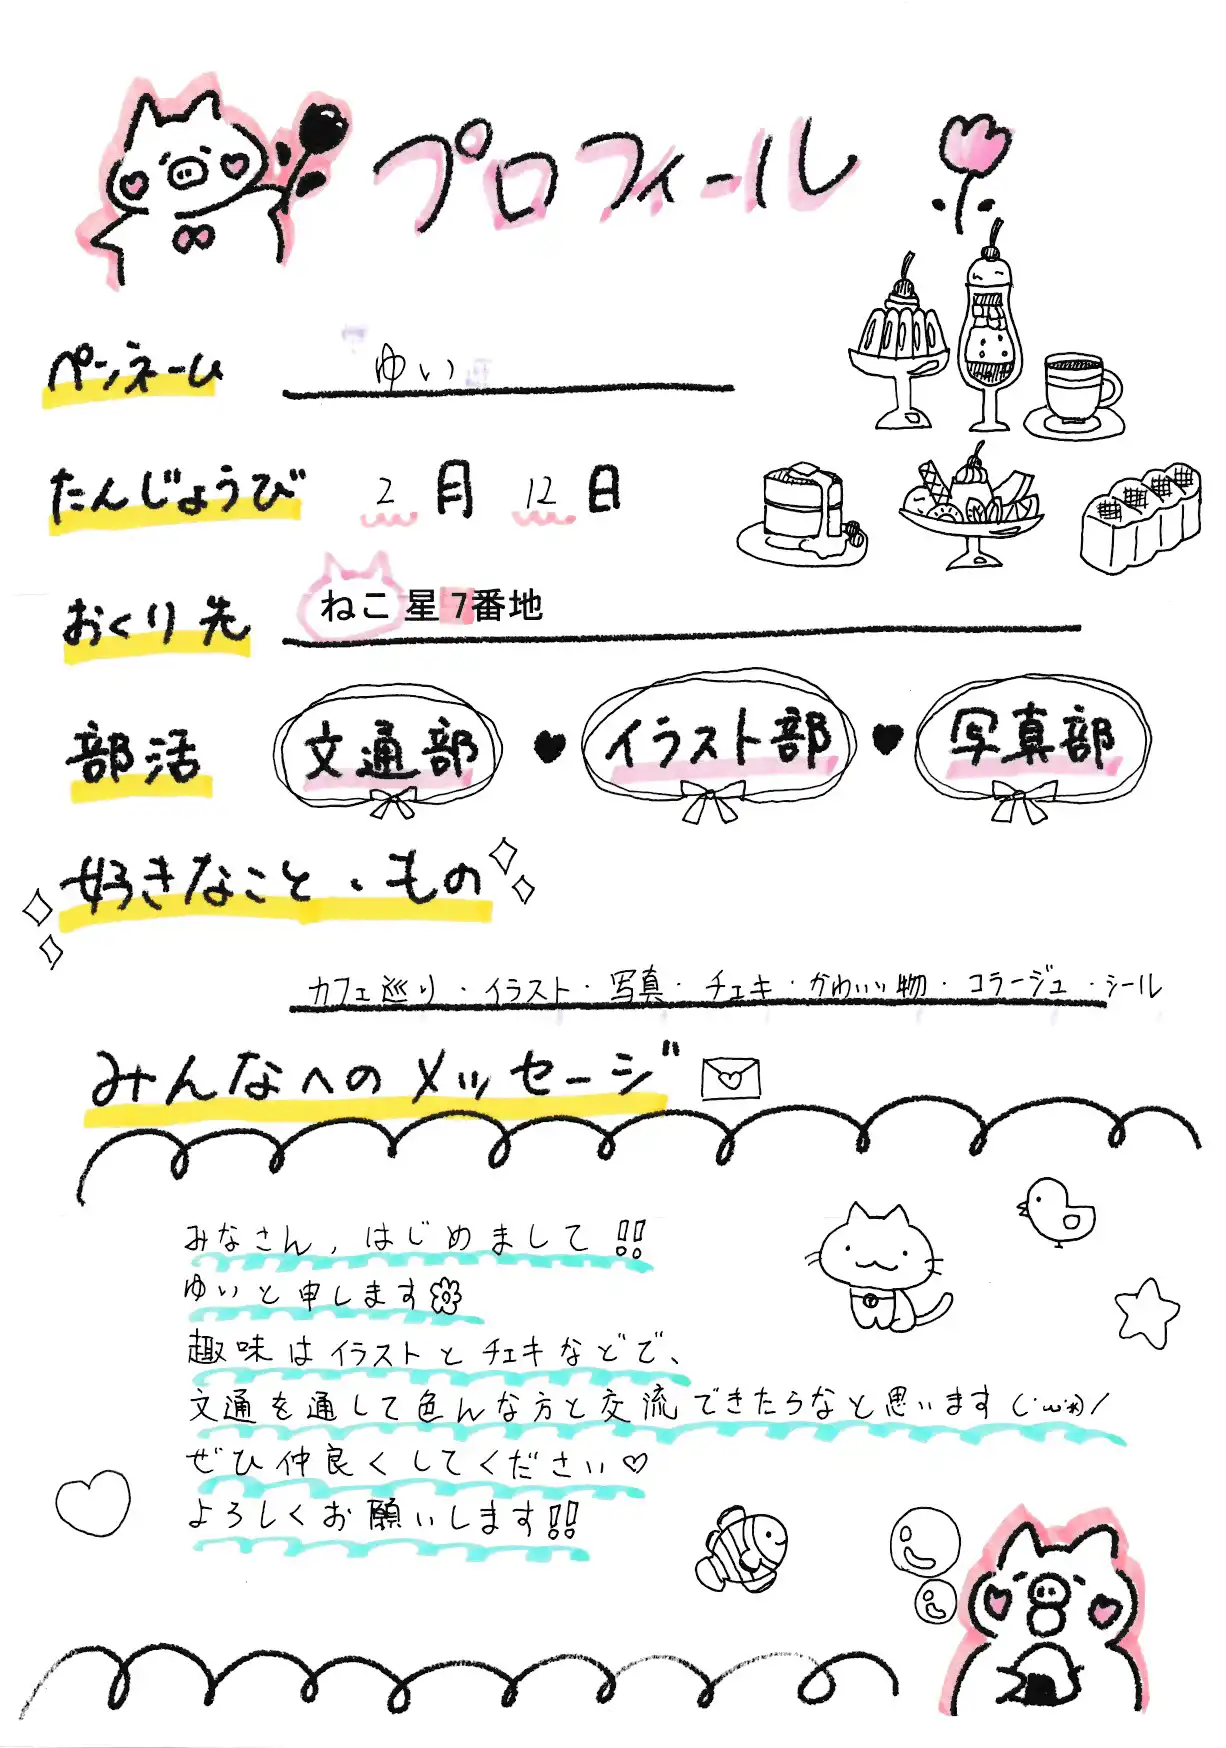 プロフィール
ペンネーム ゆい
たんじょうび 2月12日
おくり先 ねこ星7番地
部活 文通部♥イラスト部♥写真部
好きなこと・もの
カフェ巡り・イラスト・写真・チェキ・かわいい物・コラージュ・シール
みんなへのメッセージ
みなさん、はじめまして!!
ゆいと申します
趣味はイラストとチェキなどで、
文通を通して色んな方と交流できたらなと思います(･ω･*)/
ぜひ仲良くしてください♡
よろしくお願いします!!